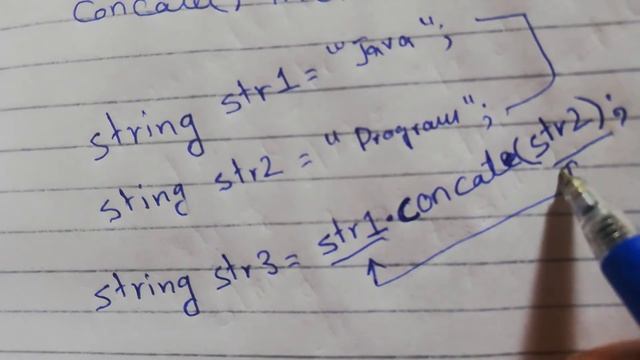 string str1 = "Java";
string str2 = "Program";
string str3 = str1.concate(str2);